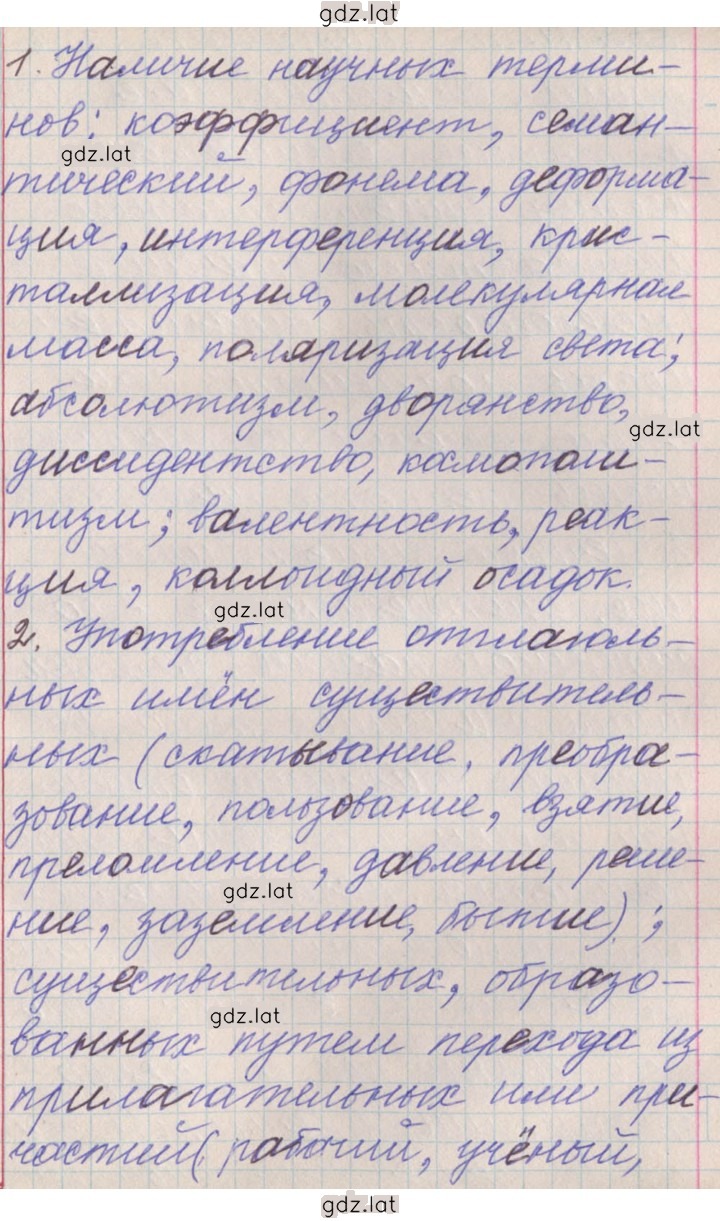 gdz.lat
1. Наличие научных терми-
нов: коэффициент, семан-
gdz.lat
тический, фонема, деформа-
ция, интерференция, крис-
таллизация, молекулярная
масса, поляризация света;
абсолютизм, дворянство,
gdz.lat
диссидентство, космополи-
тизм; валентность, реак-
ция, коллоидный осадок.
gdz.lat
2. Употребление отглаголь-
ных имён существитель-
ных (скатывание, преобра-
зование, пользование, взятие,
преломление, давление, реше-
gdz.lat
ние, заземление, бытие);
существительных, образо-
gdz.lat
ванных путем перехода из
прилагательных или при-
частий (рабочий, учёный,
gdz.lat